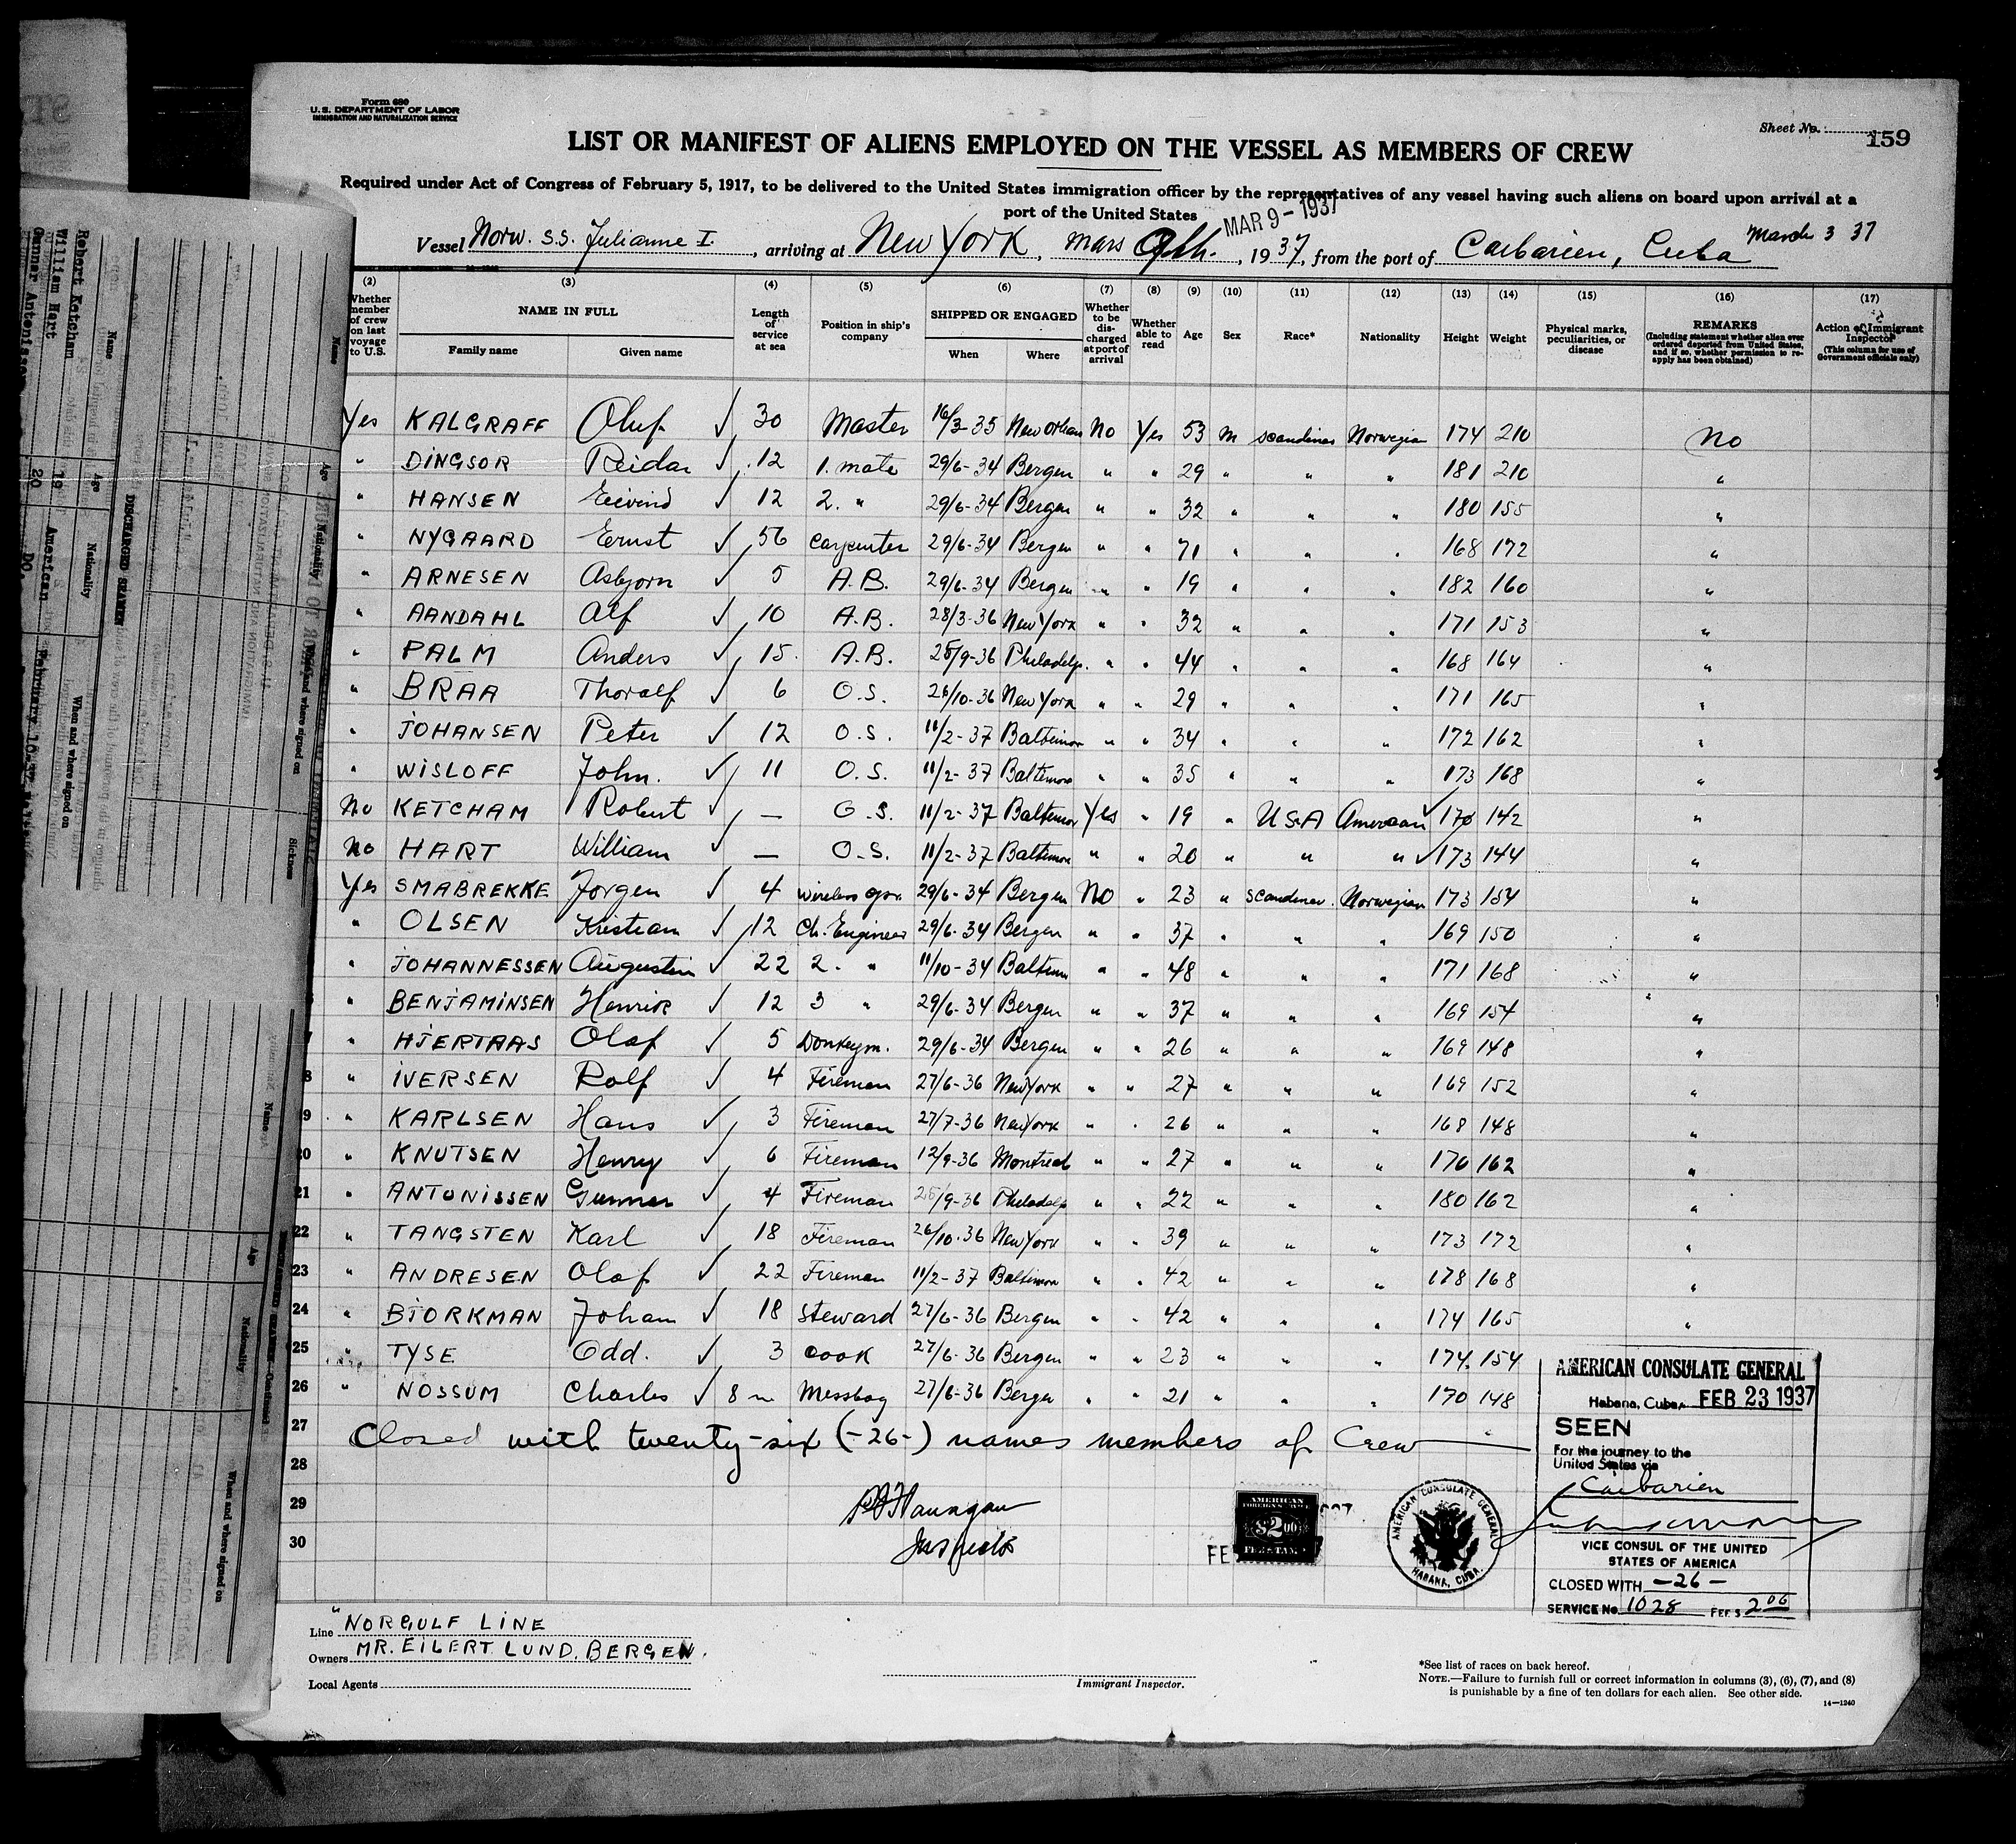 Form 680
U.S. DEPARTMENT OF LABOR
IMMIGRATION AND NATURALIZATION SERVICE
Sheet No. 159
LIST OR MANIFEST OF ALIENS EMPLOYED ON THE VESSEL AS MEMBERS OF CREW
Required under Act of Congress of February 5, 1917, to be delivered to the United States immigration officer by the representatives of any vessel having such aliens on board upon arrival at a
port of the United States
MAR 9 - 1937
March 3 37
Vessel Norw. S.S. Julianne I., arriving at New York, Mars 9th., 1937, from the port of Caibarien, Cuba
(2) (3) (4) (5) (6) (7) (8) (9) (10) (11) (12) (13) (14) (15) (16) (17)
Whether member of crew on last voyage to U.S.
NAME IN FULL
Family name Given name
Length of service at sea
Position in ship's company
SHIPPED OR ENGAGED
When Where
Whether to be discharged at port of arrival
Whether able to read
Age
Sex
Race*
Nationality
Height
Weight
Physical marks, peculiarities, or disease
REMARKS
(Including statement whether alien ever ordered deported from United States, and if so, whether permission to reapply has been obtained)
Action of Immigrant Inspector
(This column for use of Government officials only)
Yes KALGRAFF Oluf ✓ 30 Master 16/3-35 New Orleans No Yes 53 M Scandinav Norwegian 174 210 No
" DINGSOR Reidar ✓ 12 1. mate 29/6-34 Bergen " " 29 " " " 181 210 "
" HANSEN Eivind ✓ 12 2. " 29/6-34 Bergen " " 32 " " " 180 155 "
" NYGAARD Ernst ✓ 56 Carpenter 29/6-34 Bergen " " 71 " " " 168 172 "
" ARNESEN Asbjorn ✓ 5 A.B. 29/6-34 Bergen " " 19 " " " 182 160 "
" AANDAHL Alf ✓ 10 A.B. 28/3-36 New York " " 32 " " " 171 153 "
" PALM Anders ✓ 15 A.B. 25/9-36 Philadelp. " " 44 " " " 168 164 "
" BRAA Thoralf ✓ 6 O.S. 26/10-36 New York " " 29 " " " 171 165 "
" JOHANSEN Peter ✓ 12 O.S. 11/2-37 Baltimor " " 34 " " " 172 162 "
" WISLOFF John. ✓ 11 O.S. 11/2-37 Baltimore " " 35 " " " 173 168 "
No KETCHAM Robert ✓ — O.S. 11/2-37 Baltimor Yes " 19 " USA American ✓ 170 142 "
No HART William ✓ — O.S. 11/2-37 Baltimore " " 20 " " " ✓ 173 144 "
Yes SMABREKKE Jorgen ✓ 4 Wireless opr. 29/6-34 Bergen No " 23 " Scandinav. Norwegian 173 154 "
" OLSEN Kristian ✓ 12 Ch. Engineer 29/6-34 Bergen " " 37 " " " 169 150 "
" JOHANNESSEN Augustin ✓ 22 2. " 11/10-34 Baltimor " " 48 " " " 171 168 "
" BENJAMINSEN Henrik ✓ 12 3 " 29/6-34 Bergen " " 37 " " " 169 154 "
" HJERTAAS Olaf ✓ 5 Donkeym. 29/6-34 Bergen " " 26 " " " 169 148 "
" IVERSEN Rolf ✓ 4 Fireman 27/6-36 New York " " 27 " " " 169 152 "
" KARLSEN Hans ✓ 3 Fireman 27/7-36 New York " " 26 " " " 168 148 "
" KNUTSEN Henry ✓ 6 Fireman 12/9-36 Montreal " " 27 " " " 170 162 "
21 " ANTONISSEN Gunnar ✓ 4 Fireman 25/9-36 Philadelp " " 22 " " " 180 162 "
22 " TANGSTEN Karl ✓ 18 Fireman 26/10-36 New York " " 39 " " " 173 172 "
23 " ANDRESEN Olaf ✓ 22 Fireman 11/2-37 Baltimore " " 42 " " " 178 168 "
24 " BJORKMAN Johan ✓ 18 Steward 27/6-36 Bergen " " 42 " " " 174 165 "
25 " TYSE Odd. ✓ 3 Cook 27/6-36 Bergen " " 23 " " " 174 154
26 " NOSSUM Charles ✓ 8 m Messboy 27/6-36 Bergen " " 21 " " " 170 148
27 Closed with twenty-six (-26-) names members of Crew
28
29
30
AMERICAN CONSULATE GENERAL
Habana, Cuba, FEB 23 1937
SEEN
For the journey to the
United States via
Caibarien
VICE CONSUL OF THE UNITED
STATES OF AMERICA
CLOSED WITH -26-
SERVICE No. 1028 FEE $ 2.00
AMERICAN
$2.00
FEE STAMP
AMERICAN CONSULATE GENERAL
HABANA, CUBA.
Line "NORGULF LINE
Owners MR. EILERT LUND, BERGEN.
Local Agents
Immigrant Inspector.
*See list of races on back hereof.
NOTE.—Failure to furnish full or correct information in columns (3), (6), (7), and (8)
is punishable by a fine of ten dollars for each alien. See other side.
14—1240
DISCHARGED SEAMEN
Name Age Nationality When and where signed on
Robert Ketcham
William Hart 19 American
Gunnar Antonissen 20 Do.